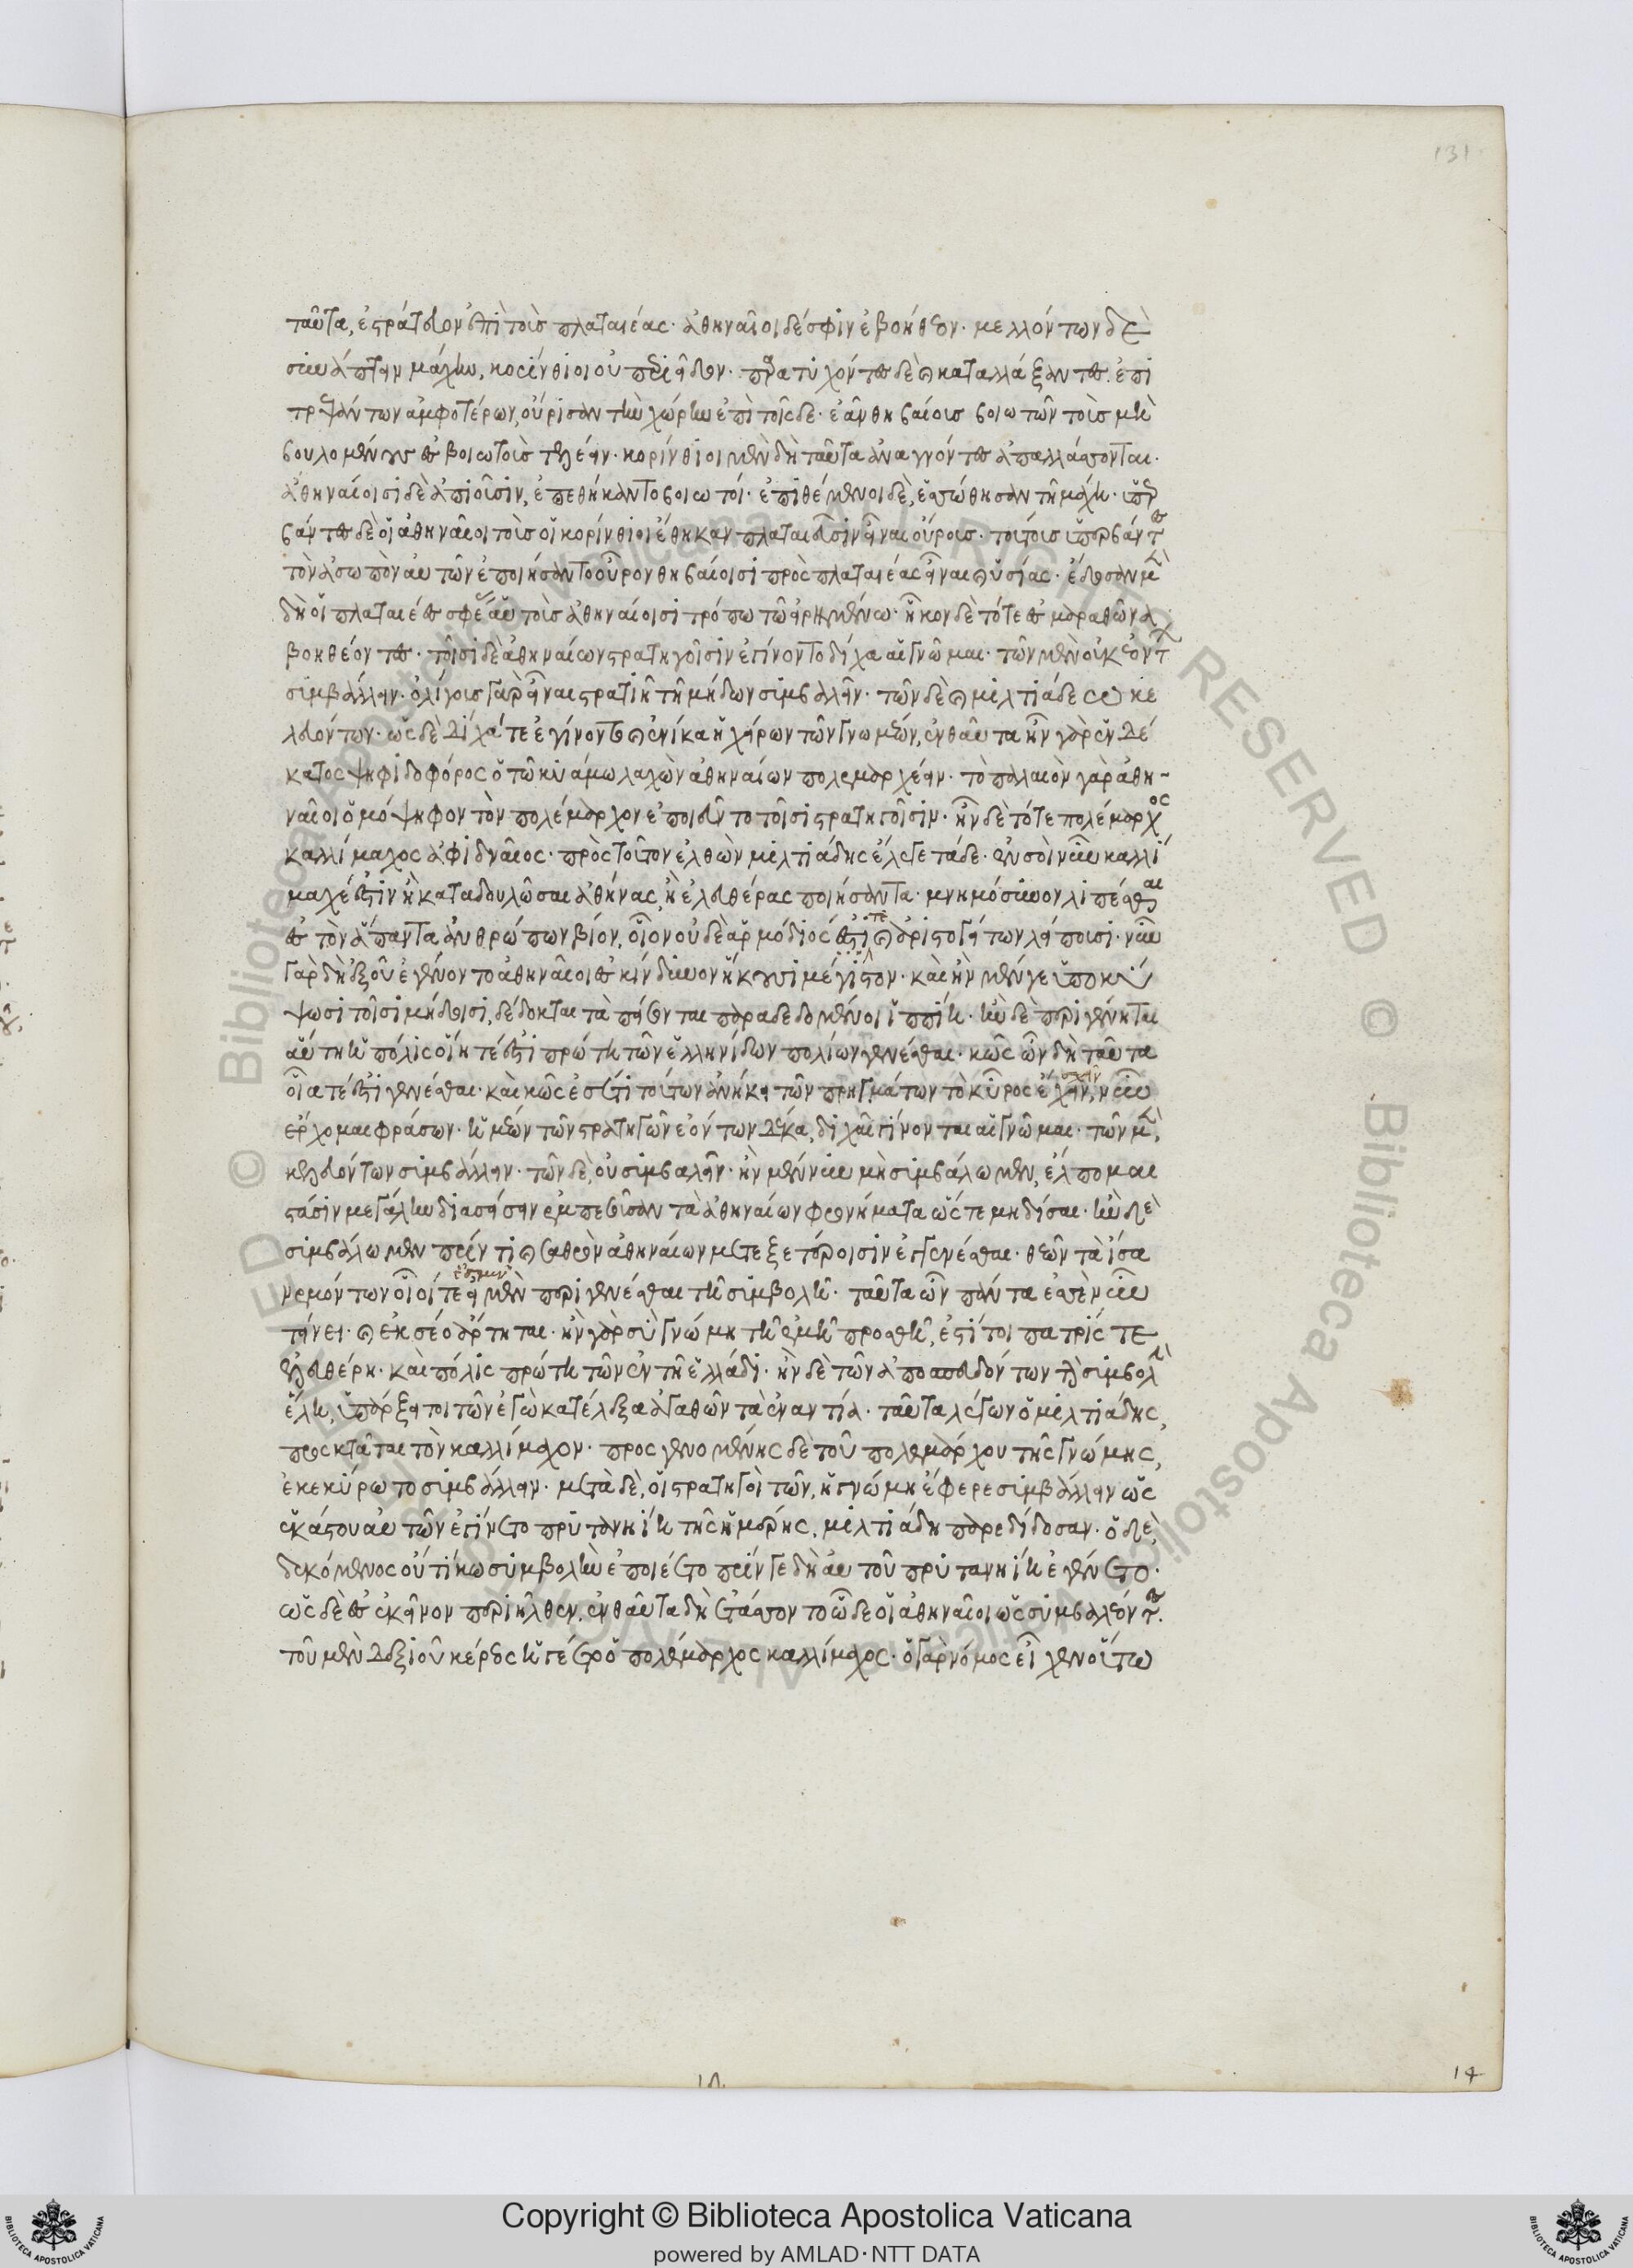 ταῦτα, ἐστράτευον ἐπὶ τοὺς πλαταιέας· ἀθηναῖοι δέ σφιν ἐβοήθεον· μελλόντων δὲ
συνάπτειν μάχην, κορίνθιοι οὐ περιεῖδον· παρατυχόντες δὲ καὶ καταλλάξαντες· ἐπι
τρεψάντων ἀμφοτέρων, οὔρισαν τὴν χώρην ἐπὶ τοῖσδε· ἐᾶν θηβαίους βοιωτῶν τοὺς μὴ
βουλομένους ἐς βοιωτοὺς τελέειν· κορίνθιοι μὲν δὴ ταῦτα ἀναγνόντες ἀπαλλάσσονται·
ἀθηναίοισι δὲ ἀπιοῦσιν, ἐπεθήκαντο βοιωτοί· ἐπιθέμενοι δὲ, ἑσσώθησαν τῆ μάχη· ὑπερ
βάντες δὲ οἱ ἀθηναῖοι τοὺς οἱ κορίνθιοι ἔθηκαν πλαταιεῦσιν εἶναι οὔρους· τούτους ὑπερβάντες
τὸν ἀσωπὸν αὐτῶν ἐποιήσαντο οὖρον θηβαίοισι πρὸς πλαταιέας εἶναι καὶ ὑσίας· ἔδοσαν μὲν
δὴ οἱ πλαταιέες σφέας αὐτοὺς ἀθηναίοισι τρόπω τῶ εἰρημένω· ἧκον δὲ τότε ἐς μαραθῶνα
βοηθέοντες· τοῖσι δὲ ἀθηναίων στρατηγοῖσιν ἐγίνοντο δίχα αἱ γνῶμαι· τῶν μὲν οὐκ ἐόντων
συμβάλλειν· ὀλίγους γὰρ εἶναι στρατιῆ τῆ μήδων συμβαλεῖν· τῶν δὲ καὶ μιλτιάδεω κε
λευόντων· ὡς δὲ δίχα τε ἐγίνοντο καὶ ἐνίκα ἡ χείρων τῶν γνωμέων, ἐνθαῦτα ἦν γὰρ ἑνδέ
κατος ψηφιδοφόρος ὁ τῶ κυάμω λαχὼν ἀθηναίων πολεμαρχέειν· τὸ παλαιὸν γὰρ ἀθη-
ναῖοι ὁμόψηφον τὸν πολέμαρχον ἐποιεῦντο τοῖσι στρατηγοῖσιν· ἦν δὲ τότε πολέμαρχος
καλλίμαχος ἀφιδναῖος· πρὸς τοῦτον ἐλθὼν μιλτιάδης ἔλεγε τάδε· ἐν σοὶ νῦν καλλί
μαχέ ἐστιν ἢ καταδουλῶσαι ἀθήνας, ἢ ἐλευθέρας ποιήσαντα· μνημόσυνον λιπέσθαι
ἐς τὸν ἅπαντα ἀνθρώπων βίον, οἷον οὐδὲ ἁρμόδιός ἐστί τε καὶ ἀριστογείτων λείπουσι· νῦν
γὰρ δὴ ἐξ οὗ ἐγένοντο ἀθηναῖοι ἐς κίνδυνον ἥκουσι μέγιστον· καὶ ἢν μέν γε ὑποκύ
ψωσι τοῖσι μήδοισι, δέδοκται τὰ πείσονται παραδεδομένοι ἱππίη· ἢν δὲ περιγένηται
αὕτη ἡ πόλις οἵη τέ ἐστι πρώτη τῶν ἑλληνίδων πολίων γενέσθαι· κῶς ὦν δὴ ταῦτα
οἷά τέ ἐστι γενέσθαι· καὶ κῶς ἐς σέ τι τούτων ἀνήκει τῶν πρηγμάτων τὸ κῦρος ἔχειν, νῦν
σχεῖν
ἔρχομαι φράσων· ἡμέων τῶν στρατηγῶν ἐόντων δέκα, δίχα γίνονται αἱ γνῶμαι· τῶν μὲν,
κελευόντων συμβάλλειν· τῶν δὲ, οὐ συμβαλεῖν· ἢν μὲν νῦν μὴ συμβάλωμεν, ἔλπομαι
στάσιν μεγάλην διασείσειν ἐμπεσοῦσαν τὰ ἀθηναίων φρονήματα ὥστε μηδίσαι· ἢν δὲ
συμβάλωμεν πρίν τι καὶ σαθρὸν ἀθηναίων μετεξετέροισιν ἐγγενέσθαι· θεῶν τὰ ἴσα
νεμόντων οἷοί τε εἰμὲν περιγενέσθαι τῆ συμβολῆ· ταῦτα ὦν πάντα ἐς σὲ νῦν
τείνει· καὶ ἐκ σέο ἄρτηται· ἢν γὰρ σὺ γνώμη τῆ ἐμῆ προσθῆ, ἔστι τοι πατρίς τε
ἐλευθέρη· καὶ πόλις πρώτη τῶν ἐν τῆ ἑλλάδι· ἢν δὲ τῶν ἀποσπευδόντων τὴν συμβολὴν
ἕλη, ὑπάρξει τοι τῶν ἐγὼ κατέλεξα ἀγαθῶν τὰ ἐναντία· ταῦτα λέγων ὁ μιλτιάδης,
προσκτᾶται τὸν καλλίμαχον· προσγενομένης δὲ τοῦ πολεμάρχου τῆς γνώμης,
ἐκεκύρωτο συμβάλλειν· μετὰ δὲ, οἱ στρατηγοὶ τῶν, ἡ γνώμη ἔφερε συμβάλλειν ὡς
ἑκάστου αὐτῶν ἐγίνετο πρυτανηίη τῆς ἡμέρης, μιλτιάδη παρεδίδοσαν· ὁ δὲ,
δεκόμενος οὔτί κω συμβολὴν ἐποιέετο πρίν γε δὴ αὐτοῦ πρυτανηίη ἐγένετο·
ὡς δὲ ἐς ἐκεῖνον περιῆλθεν, ἐνθαῦτα δὴ ἐτάσσοντο ὧδε οἱ ἀθηναῖοι ὡς συμβαλέοντες·
τοῦ μὲν δεξιοῦ κέρεος ἡγέετο ὁ πολέμαρχος καλλίμαχος· ὁ γὰρ νόμος εἶχεν οὕτω